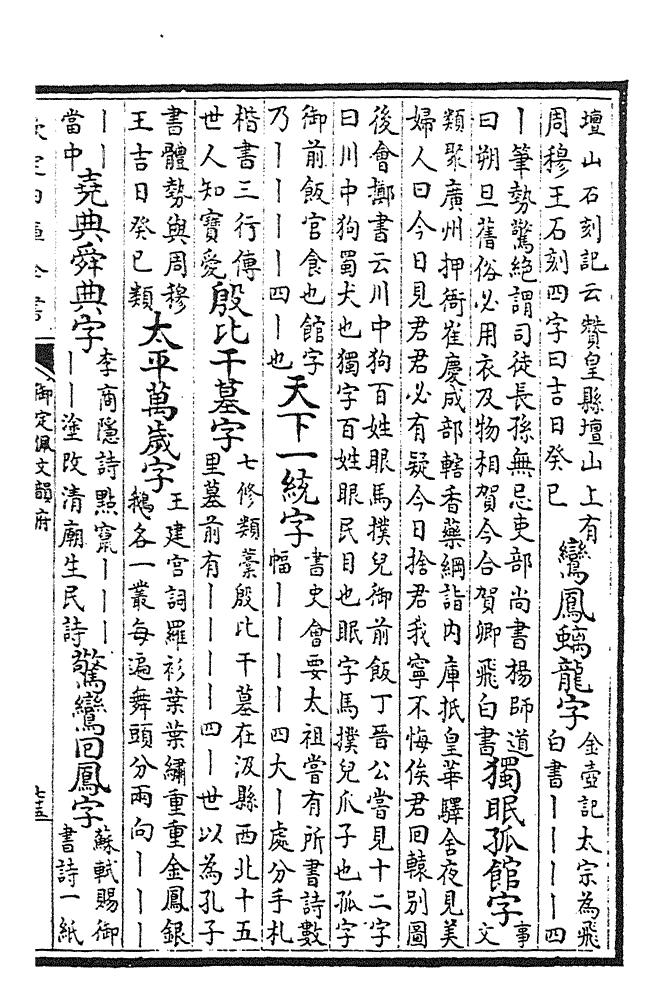 壇山石刻記云贊皇縣壇山上有
周穆王石刻四字曰吉日癸巳
鸞鳳螭龍字
金壺記太宗為飛
白書丨丨丨丨四
丨筆勢驚絕謂司徒長孫無忌吏部尚書楊師道
曰朔旦舊俗必用衣及物相賀今合賀卿飛白書
獨眠孤館字
事
文
類聚廣州押衙崔慶成部轄香藥綱詣内庫抵皇華驛舍夜見美
婦人曰今日見君君必有疑今日捨君我寧不悔俟君回轅別圖
後會擲書云川中狗百姓眼馬撲兒御前飯丁晉公嘗見十二字
曰川中狗蜀犬也獨字百姓眼民目也眠字馬撲兒瓜子也孤字
御前飯官食也館字
乃丨丨丨丨四丨也
天下一統字
書史會要太祖嘗有所書詩數
幅丨丨丨丨四大丨處分手札
楷書三行傳
世人知寶愛
殷比干墓字
七修類藁殷比干墓在汲縣西北十五
里墓前有丨丨丨丨四丨世以為孔子
書體勢與周穆
王吉日癸巳類
太平萬歲字
王建宮詞羅衫葉葉繡重重金鳳銀
鵝各一叢每遍舞頭分兩向丨丨丨
丨丨
當中
堯典舜典字
李商隱詩點竄丨丨丨
丨丨塗改清廟生民詩
驚鸞回鳳字
蘇軾賜御
書詩一紙
欽定四庫全書
御定佩文韻府
七五